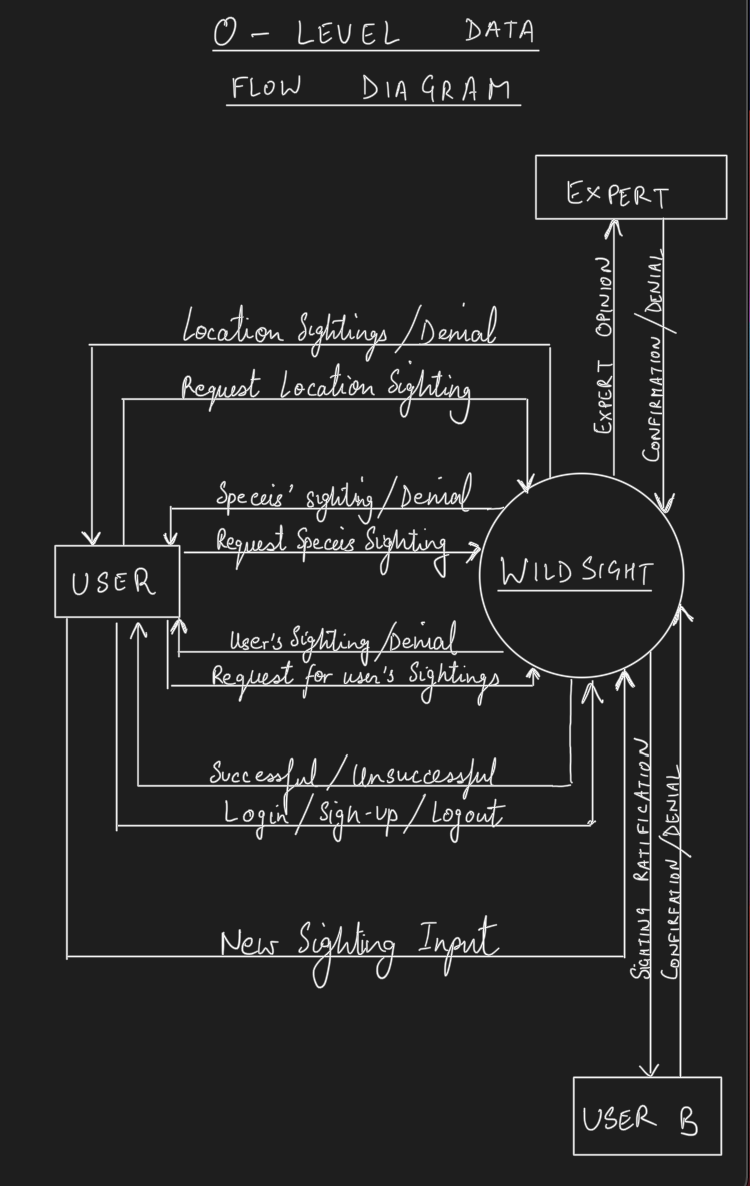 0 - LEVEL DATA
FLOW DIAGRAM
EXPERT
EXPERT OPINION
CONFIRMATION/DENIAL
Location Sightings / Denial
Request Location Sighting
Speceis' sighting / Denial
Request Speceis Sighting
USER
WILDSIGHT
User's Sighting / Denial
Request for user's Sightings
Successful / Unsuccessful
Login / Sign-up / Logout
New Sighting Input
SIGHTING RATIFICATION
CONFIRFATION/DENIAL
USER B